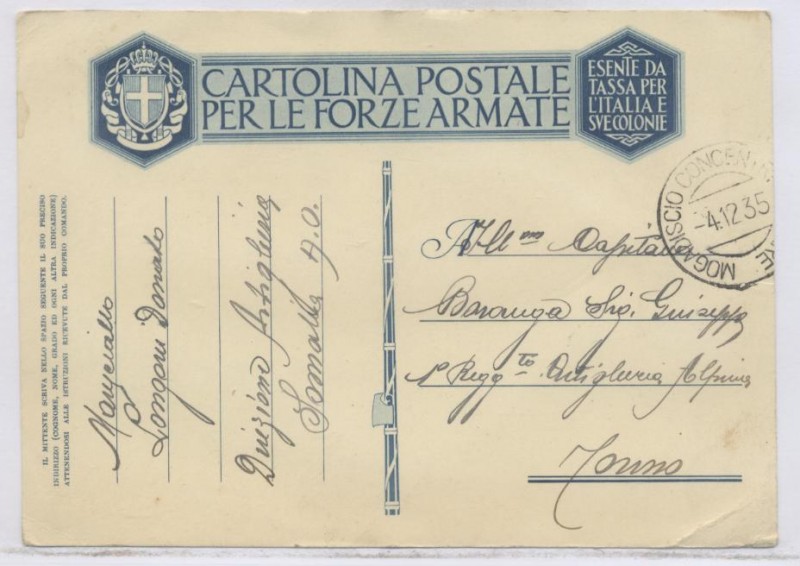 CARTOLINA POSTALE
PER LE FORZE ARMATE
ESENTE DA
TASSA PER
L'ITALIA E
SVE COLONIE
MOGADISCIO CONCEN
-4.12.35
IL MITTENTE SCRIVA NELLO SPAZIO SEGUENTE IL SUO PRECISO
INDIRIZZO (COGNOME, NOME, GRADO ED OGNI ALTRA INDICAZIONE)
ATTENENDOSI ALLE ISTRUZIONI RICEVUTE DAL PROPRIO COMANDO.
Longoni Donato
Direzione Artiglieria
Somalia A.O.
All'
Capitano
Sig. Giuseppe
1° Regg.to Artiglieria Alpina
Torino